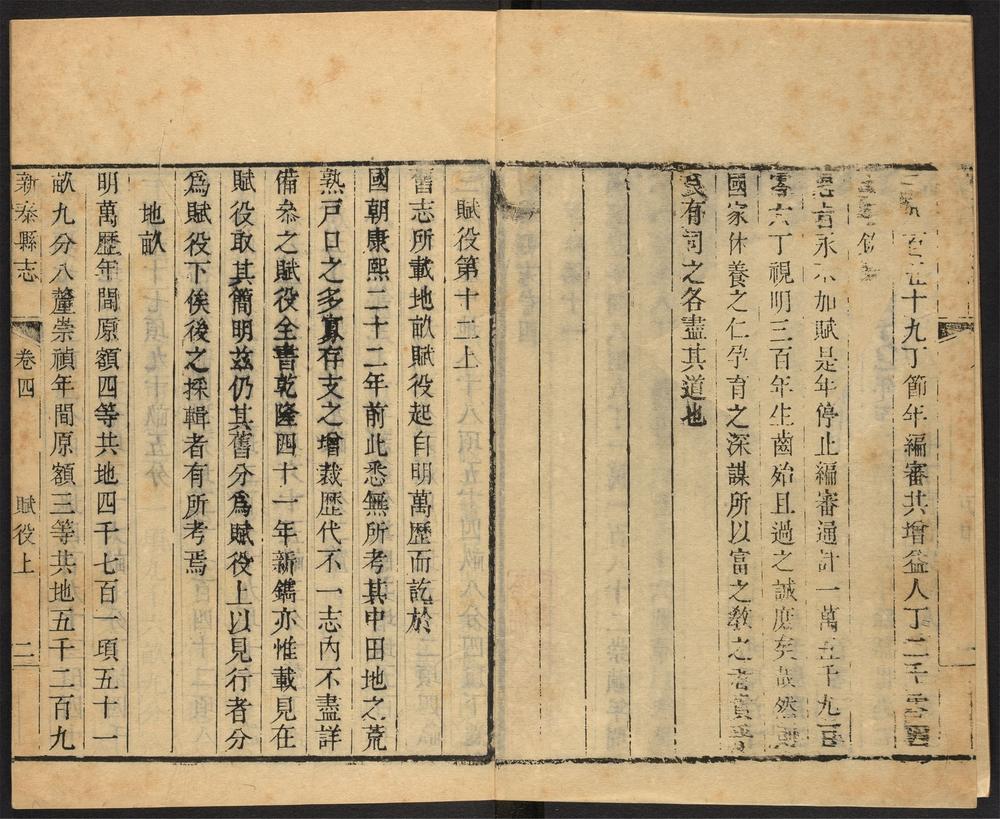 十九丁節年編審共增益人丁二千
旨永不加賦是年停止編審通計一萬五千九百
六丁視明三百年生齒殆且過之誠庶矣哉然
國家休養之仁孕育之深謀所以富之敎之者實
有司之各盡其道也
賦役第十述上
舊志所載地畝賦役起自明萬歷而訖於
國朝康熙二十二年前此悉無所考其中田地之荒
熟戸口之多寡存支之增裁歷代不一志內不盡詳
備叅之賦役全書乾隆四十一年新鐫亦惟載見在
賦役敢其簡明茲仍其舊分爲賦役上以見行者分
爲賦役下俟後之採輯者有所考焉
地畝
明萬歷年間原額四等共地四千七百一項五十一
畝九分八釐崇禎年間原額三等共地五千二百九
新泰縣志 卷四 賦役上 二